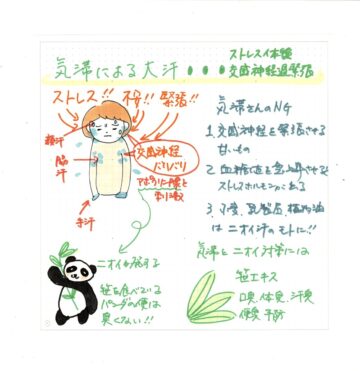 ストレス体験
気滞による大汗・・・交感神経過緊張
ストレス!! 不安!! 緊張!!
脇汗
手汗
交感神経
バリバリ
ニオイが発する
笹を食べている
パンダの便は
臭くない!!
気滞さんのNG
1. 交感神経を緊張させる
甘いもの
2. 血糖値を急上昇させる
ストレスホルモンが出る
3. 小麦、乳製品、植物油
はニオイ汗のモトに!!
気滞とニオイ対策には
笹エキス
口臭、体臭、汗臭
便臭予防